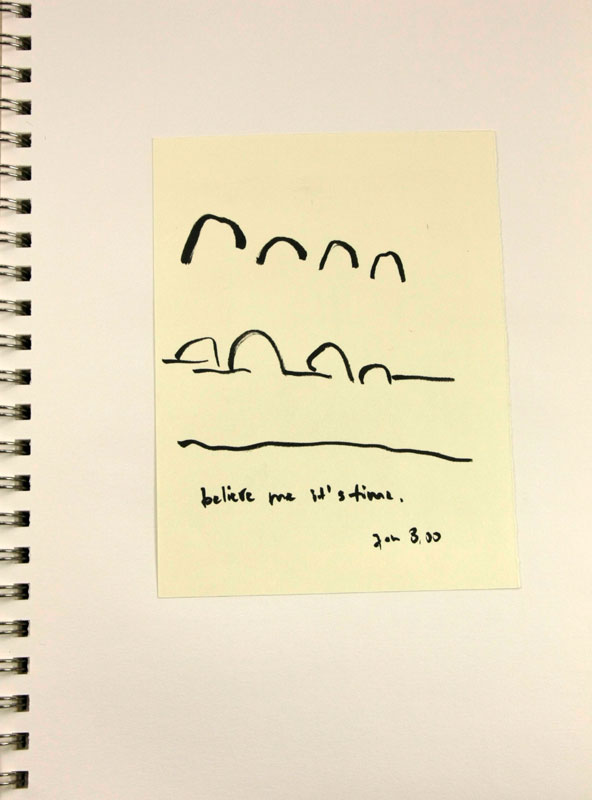 believe me it's time.
Jan 3,00